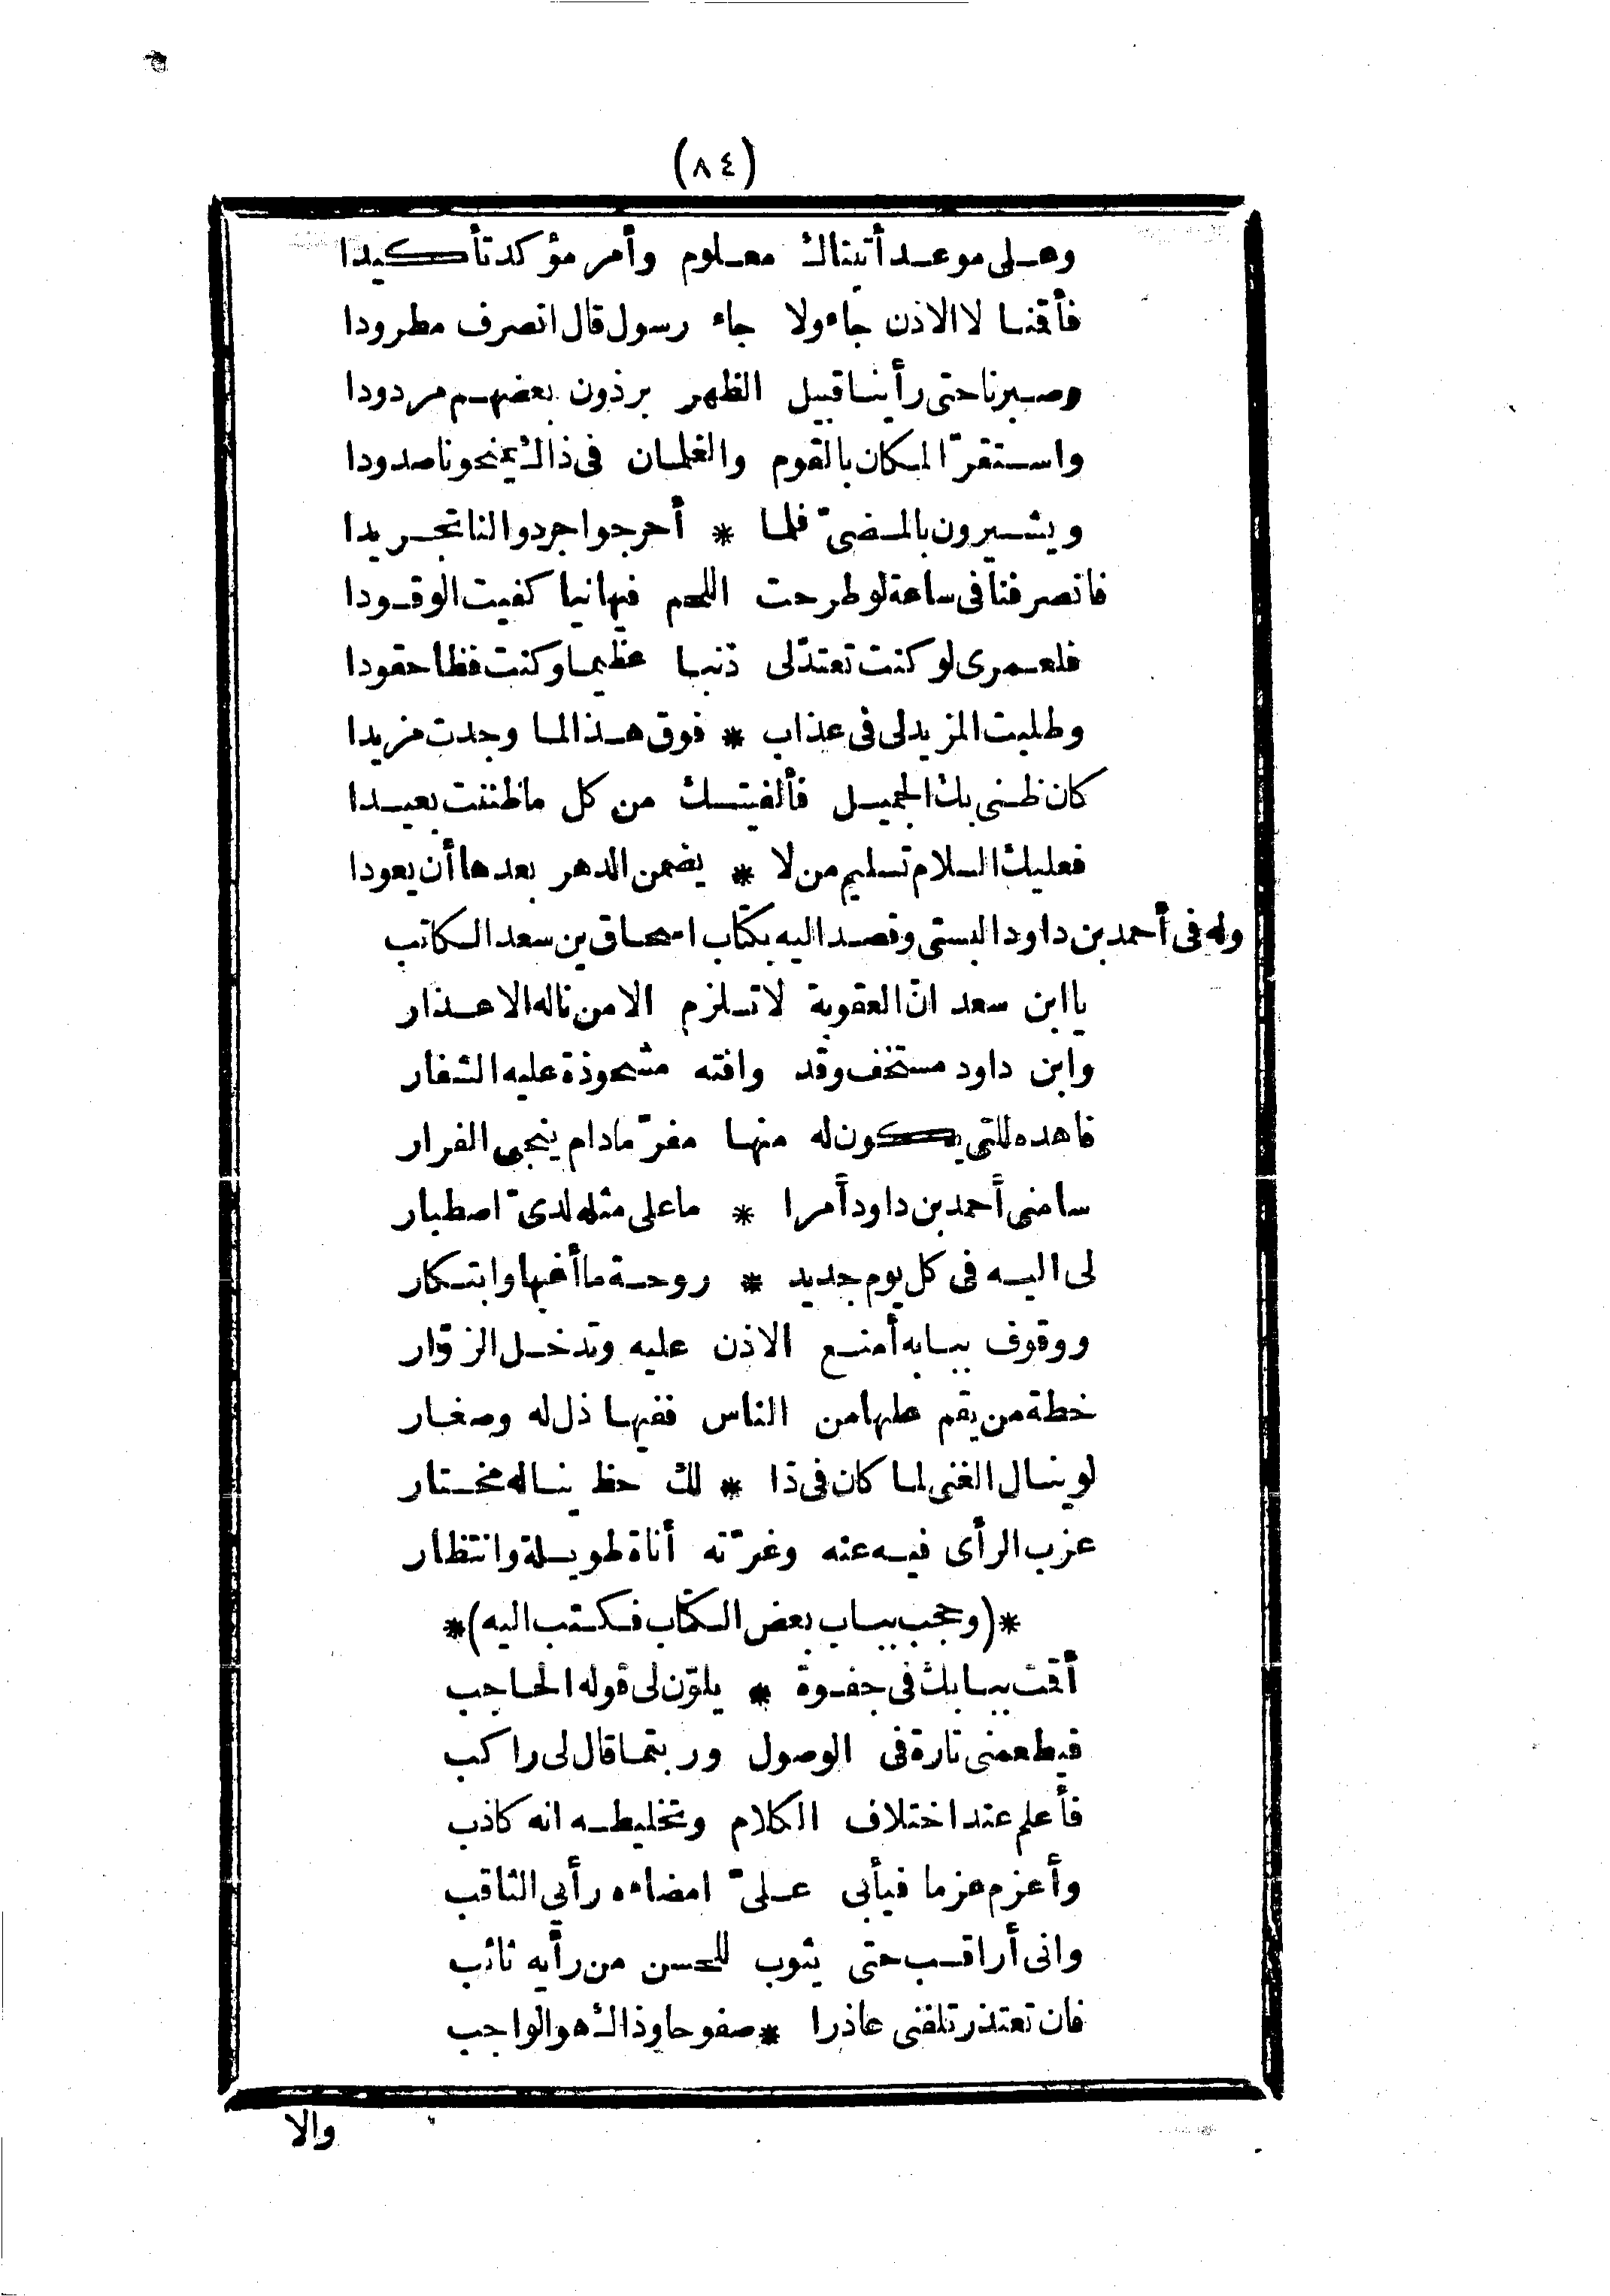 (٨٤)
وعلى موعد أتيناك معلوم وأمر مؤكد تأكيدا
فأقمنا لا الاذن جاء ولا جاء رسول قال انصرف مطرودا
وصبرنا حتى رأينا قبيل الظهر برذون بعضهم مردودا
واستقرّ المكان بالقوم والغلمان فى ذاك يمنحونا صدودا
ويشيرون بالمضىّ فلما * أحرجوا جردوا لنا تجريدا
فانصرفنا فى ساعة لو طرحت اللحم فيها نيا كفيت الوقودا
فلعمرى لو كنت تعتدّ لى ذنبا عظيما وكنت فظا حقودا
وطلبت المزيد لى فى عذاب * فوق هذا لما وجدت مزيدا
كان ظنى بك الجميل فألفيتك من كل ما ظننت بعيدا
فعليك السلام تسليم من لا * يضمن الدهر بعدها أن يعودا
وله فى أحمد بن داود البستى وقصد اليه بكتاب اسحاق بن سعد الكاتب
يا ابن سعد انّ العقوبة لا تلزم الا من ناله الاعذار
وابن داود مستخف وقد وافته مشحوذة عليه الشفار
فاهده للتى يكون له منها مفرّ مادام ينجى الفرار
سامنى أحمد بن داود أمرا * ما على مثله لدىّ اصطبار
لى اليه فى كل يوم جديد * روحة ما أغبها وابتكار
ووقوف ببابه أمنع الاذن عليه وتدخل الزوّار
خطة من يقم عليها من الناس ففيها ذل له وصغار
لو ينال الغنى لما كان فى ذا * لك حظ يناله مختار
عزب الرأى فيه عنه وغرّته أناة طويلة وانتظار
*(وحجب بباب بعض الكتاب فكتب اليه)*
أقمت ببابك فى جفوة * يلوّن لى قوله الحاجب
فيطعمنى تارة فى الوصول وربتما قال لى راكب
فأعلم عند اختلاف الكلام وتخليطه انه كاذب
وأعزم عزما فيأبى علىّ امضاءه رأيى الثاقب
وانى أراقب حتى يثوب للحسن من رأيه ثائب
فان تعتذر تلفنى عاذرا * صفوحا وذاك هو الواجب
والا